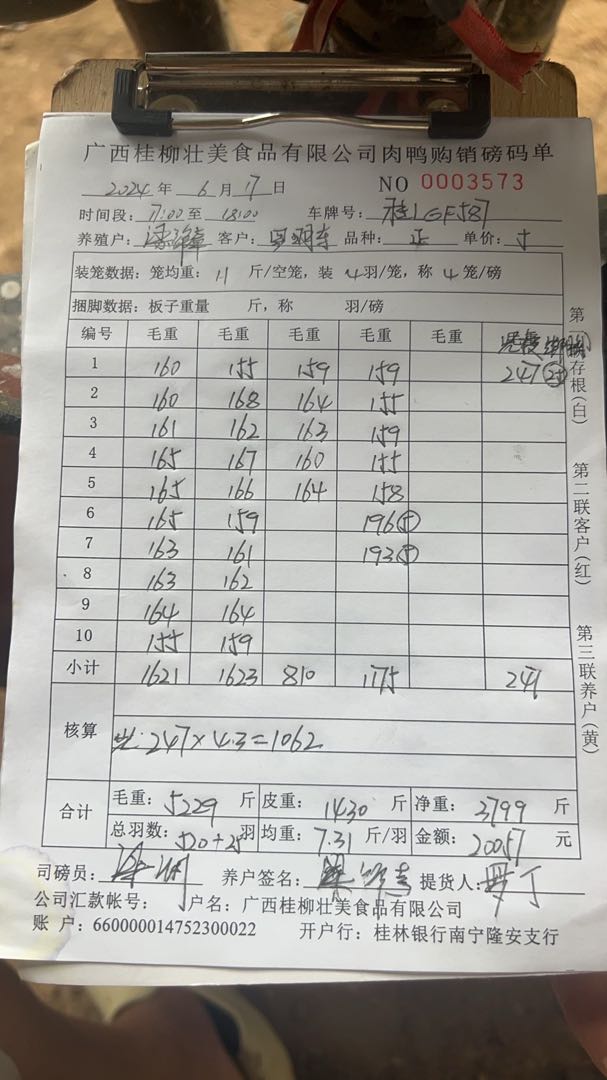 广西桂柳壮美食品有限公司肉鸭购销磅码单
2024 年 6 月 17 日 NO 0003573
时间段: 7:00 至 18:00 车牌号: 桂LGF587
养殖户: 客户: 品种: 正 单价:
装笼数据: 笼均重: 11 斤/空笼, 装 4 羽/笼, 称 4 笼/磅
捆脚数据: 板子重量 斤, 称 羽/磅
编号 毛重 毛重 毛重 毛重 毛重
1 160 155 159 159 247 (25)
2 160 168 164 155
3 161 162 163 159
4 165 167 160 155
5 165 166 164 158
6 165 159 196 (5)
7 163 161 193 (5)
8 163 162
9 164 164
10 155 159
小计 1621 1623 810 1175 247
核算 247×4.3=1062
合计 毛重: 5229 斤 皮重: 1430 斤 净重: 3799 斤
总羽数: 520+25 羽 均重: 7.31 斤/羽 金额: 20057 元
司磅员: 养户签名: 提货人:
公司汇款帐号: 户名: 广西桂柳壮美食品有限公司
账 户: 660000014752300022 开户行: 桂林银行南宁隆安支行
第一存根(白)
第二联客户(红)
第三联养户(黄)